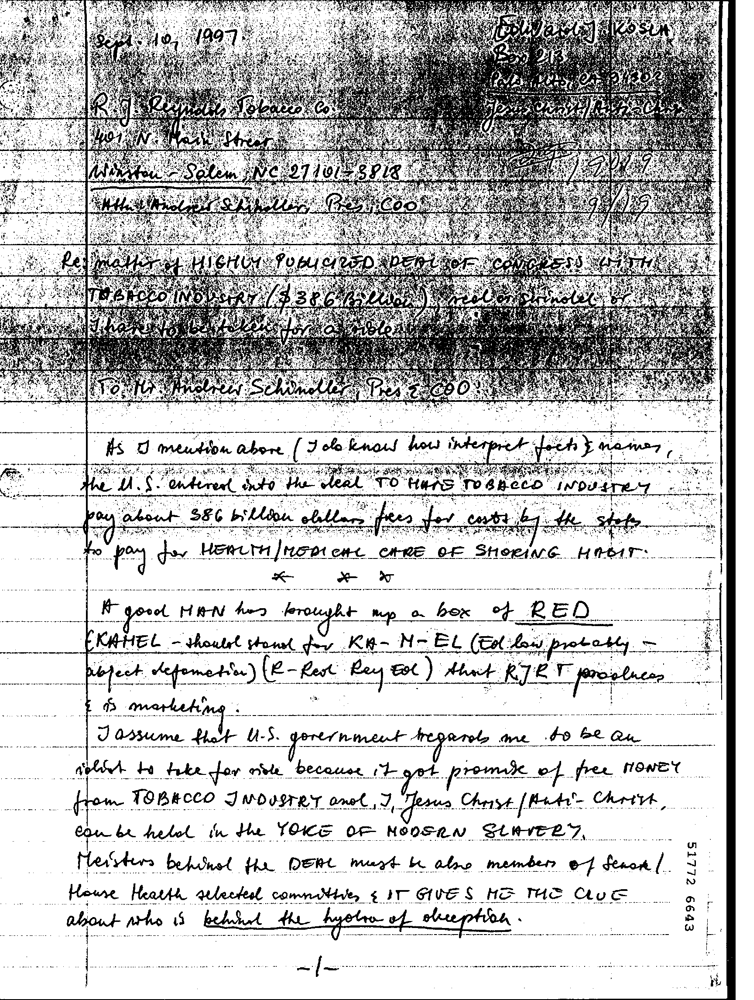 Sept. 10, 1997
[Edward J. KOSLA
Box 213
Palo Alto, CA 94302
Jesus Christ/Anti-Christ
R. J. Reynolds Tobacco Co.
401 N. Main Street
Winston-Salem, NC 27101-3818
Attn: Andrew Schindler, Pres, COO
9/19
Re: matter of HIGHLY PUBLICIZED DEAL OF CONGRESS WITH
TOBACCO INDUSTRY ($386 Billion) real or swindel or
I have to be taken for a ride
To: Mr. Andrew Schindler, Pres & COO:
As I mention above (I do know how interpret facts & names,
the U.S. entered into the deal TO HAVE TOBACCO INDUSTRY
pay about 386 billion dollars fees for costs by the states
to pay for HEALTH/MEDICAL CARE OF SMOKING HABIT.
* * *
A good MAN has brought up a box of RED
(KAMEL - should stand for KA-M-EL (Ed law, probably -
abject defamation) (R-Red Ray Ed) that RJRT produces
& is marketing.
I assume that U.S. government regards me to be an
idiot to take for ride because it got promise of free MONEY
from TOBACCO INDUSTRY and, I, Jesus Christ/Anti-Christ,
can be held in the YOKE OF MODERN SLAVERY.
Meisters behind the DEAL must be also members of Senate/
House Health selected committies & IT GIVES ME THE CLUE
about who is behind the hydra of deception.
-1-
51772 6643